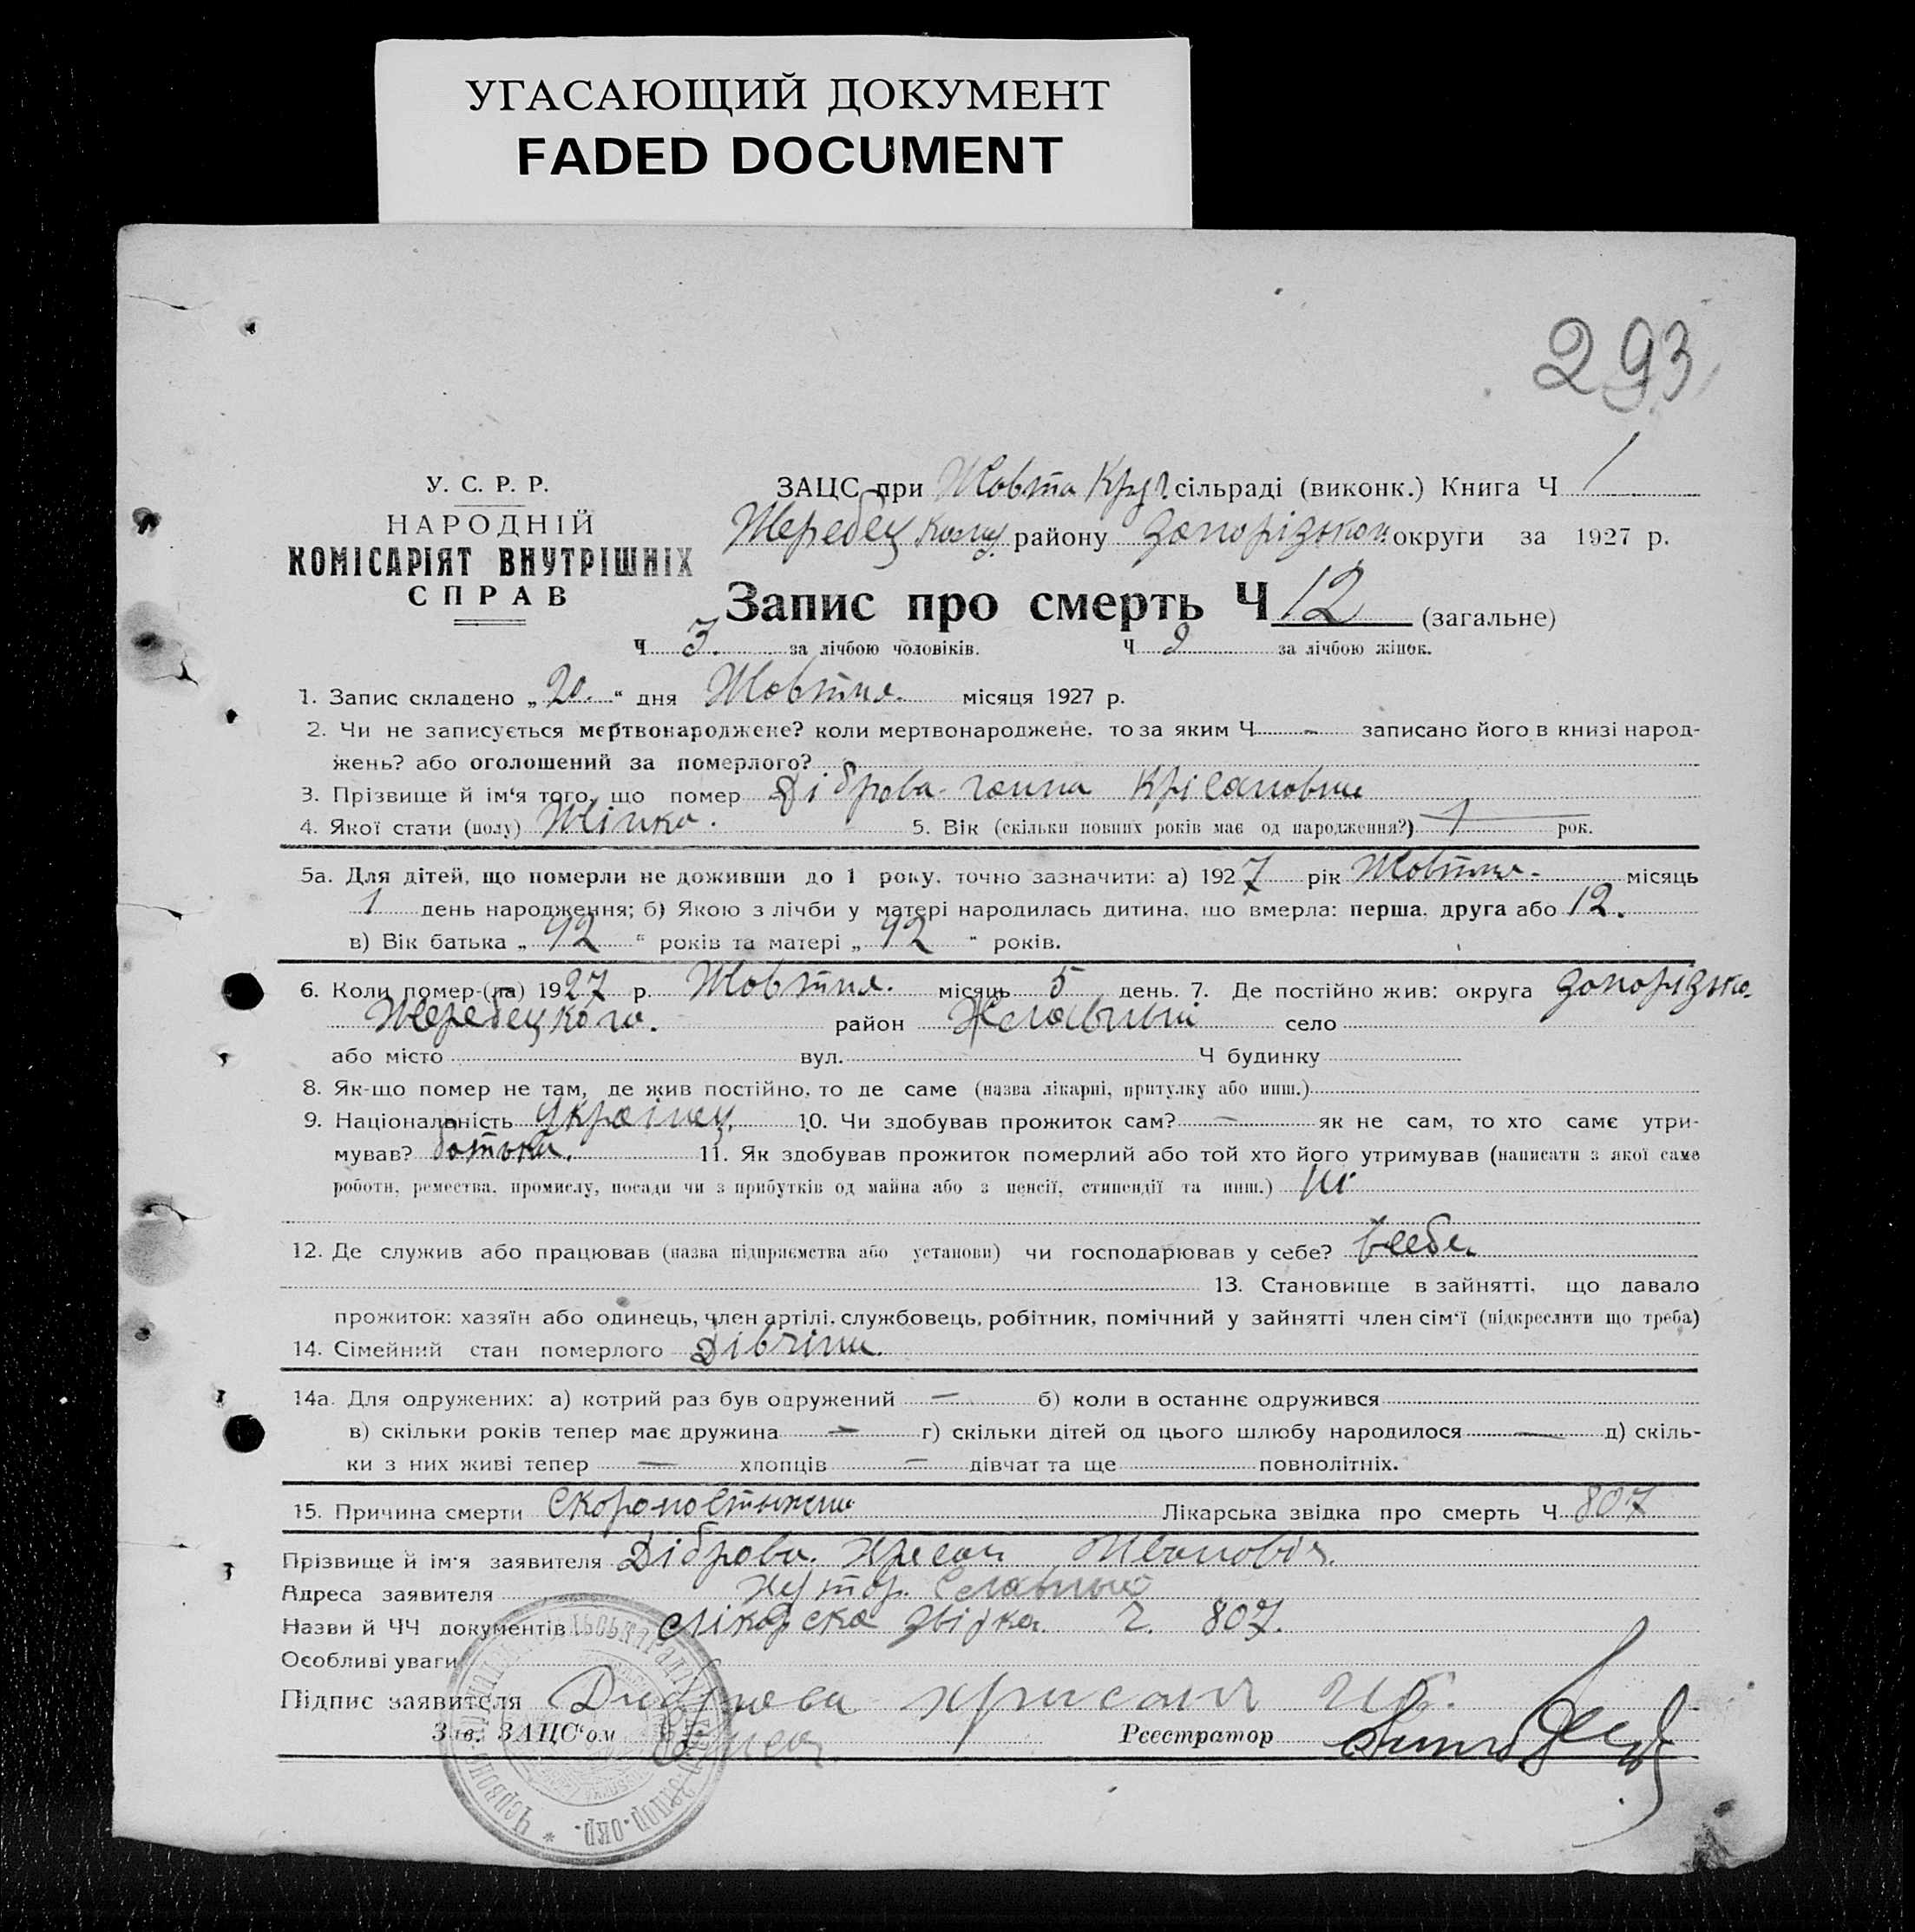 УГАСАЮЩИЙ ДОКУМЕНТ
FADED DOCUMENT
293
У. С. Р. Р.
НАРОДНІЙ
КОМІСАРІЯТ ВНУТРІШНІХ
СПРАВ
ЗАЦС при Жовта Круч. сільраді (виконк.) Книга Ч 1
Жеребец кому району Запорізькои округи за 1927 р.
Запис про смерть Ч 12 (загальне)
Ч 3. за лічбою чоловіків. Ч 9 за лічбою жінок.
1. Запис складено „20.“ дня Жовтня. місяця 1927 р.
2. Чи не записується мертвонароджене? коли мертвонароджене, то за яким Ч - записано його в книзі народ-
жень? або оголошений за померлого?
3. Прізвище й ім‘я того, що помер Діброва Ганна Крісановна
4. Якої стати (полу) Жінка. 5. Вік (скільки повних років має од народження?) 1 рок.
5а. Для дітей, що померли не доживши до 1 року, точно зазначити: а) 1927 рік Жовтня. місяць
1 день народження; б) Якою з лічби у матері народилась дитина, що вмерла: перша, друга або 12.
в) Вік батька „42“ років та матері „42“ років.
6. Коли помер-(ла) 1927 р. Жовтня. місяць 5 день. 7. Де постійно жив: округа Запорізька.
Жеребецкого. район село
або місто вул. Ч будинку
8. Як-що помер не там, де жив постійно, то де саме (назва лікарні, притулку або инш.)
9. Національність Українец. 10. Чи здобував прожиток сам? — як не сам, то хто саме утри-
мував? батька. 11. Як здобував прожиток померлий або той хто його утримував (написати з якої саме
роботи, ремества, промислу, посади чи з прибутків од майна або з пенсії, стипендії та инш.)
12. Де служив або працював (назва підприємства або установи) чи господарював у себе? в себе.
13. Становище в зайнятті, що давало
прожиток: хазяїн або одинець, член артілі, службовець, робітник, помічний у зайнятті член сім‘ї (підкреслити що треба)
14. Сімейний стан померлого Дівчина.
14а. Для одружених: а) котрий раз був одружений — б) коли в останнє одружився
в) скільки років тепер має дружина — г) скільки дітей од цього шлюбу народилося — д) скіль-
ки з них живі тепер — хлопців — дівчат та ще повнолітніх.
15. Причина смерти Скоропостижни Лікарська звідка про смерть Ч 807
Прізвище й ім‘я заявителя Діброва. Хресан Иванович.
Адреса заявителя Хутор. Славный
Назви й ЧЧ документів Лікарска звідка. Ч. 807.
Особливі уваги
Підпис заявителя Диброва Хрисант Ив.
Зав. ЗАЦС‘ом Реєстратор